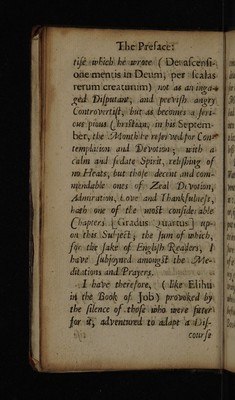 The Preface:
tise which he wrote ( De ascensi-
one mentis in Deum, per scalas
rerum creatarum) not as an inga-
ged Disputant, and peevish angry
Controvertist, but as becomes a seri-
ous pious Christian, in his Septem-
ber, the Month he reserved for Con-
templation and Devotion; with a
calm and sedate Spirit, relishing of
no Heats, but those decent and com-
mendable ones of Zeal Devotion,
Admiration, Love and Thankfulness,
hath one of the most considerable
Chapters (Gradus Quartus) up-
on this Subject; the sum of which,
for the sake of English Readers, I
have subjoyned amongst the Me-
ditations and Prayers.
I have therefore, ( like Elihu
in the Book of Job) provoked by
the silence of those who were fitter
for it, adventured to adapt a Dis-
course